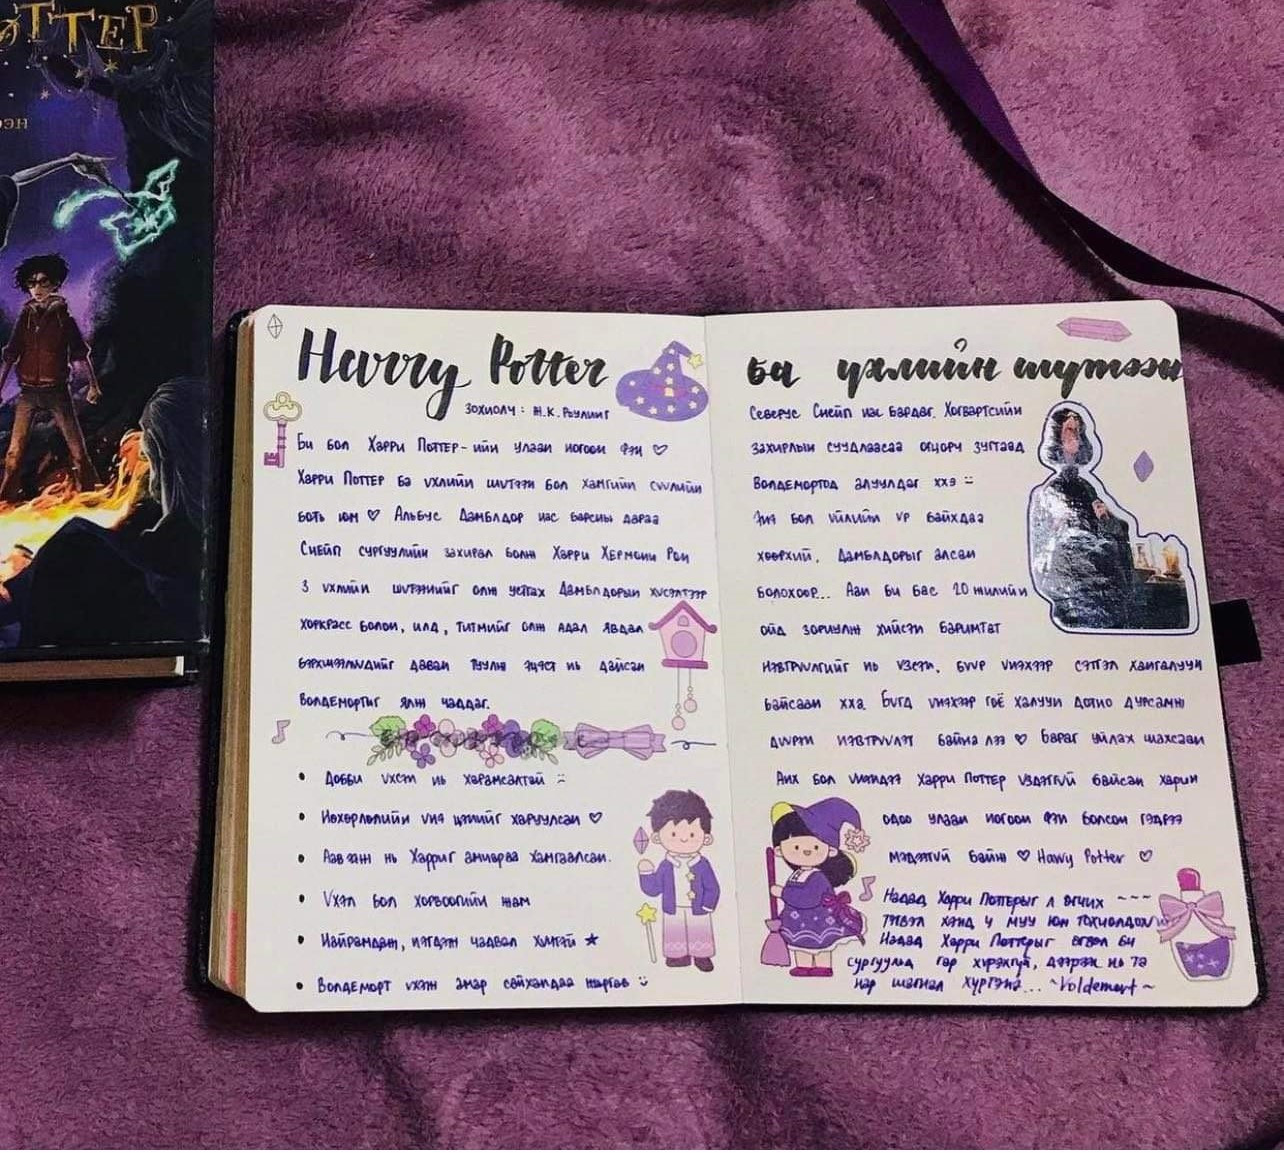 ОТТЕР
ОЭН
Harry Potter
ЗОХИОЛЧ: Ж.К. РОУЛИНГ
Би бол Харри Поттер-ийн улаан ногоон фэн ♡
Харри Поттер ба үхлийн шүтээн бол хамгийн сүүлийн
боть юм ♡ Альбус Дамблдор нас барсны дараа
Снейп сургуулийн захирал болж Харри Хермони Рон
3 үхлийн шүтээнийг олж устгах Дамблдорын хүсэлтээр
хоркракс болон, илд, титмийг олж адал явдал
бэрхшээлүүдийг даван туулж эцэст нь дайсан
Волдемортыг ялж чаддаг.
• Добби үхсэн нь харамсалтай :(
• Нөхөрлөлийн үнэ цэнийг харуулсан ♡
• Аав ээж нь Харриг амиараа хамгаалсан.
• Үхэл бол хорвоогийн жам
• Найрамдаж, нэгдэж чадвал хүчтэй ★
• Волдеморт үхэж амар сайхандаа жаргав :)
ба үхлийн шүтээн
Северус Снейп нас бардаг. Хогвартсийн
захирлын суудлаасаа огцорч зугтаад
Волдемортод алуулдаг ххэ :)
Энэ бол үйлийн үр байхдаа
хөөрхий, Дамблдорыг алсан
болохоор... Аан би бас 20 жилийн
ойд зориулж хийсэн баримтат
нэвтрүүлгийг нь үзсэн, бүүр үнэхээр сэтгэл хангалуун
байсаан хха. Бүгд үнэхээр гоё халуун дотно дурсамж
дүүрэн нэвтрүүлэг байна лээ ♡ Бараг уйлах шахсаан
Анх бол үнэндээ Харри Поттер үздэггүй байсан харин
одоо улаан ногоон фэн болсон гэдгээ
мэдэхгүй байж ♡ Harry Potter ♡
Надад Харри Поттерыг л өгчих ~~~
тэгвэл хэнд ч муу юм тохиолдохгүй
Надад Харри Поттерыг өгвөл би
сургуульд гар хүрэхгүй, дээрэх нь та
нар шагнал хүртэнэ... ~Voldemort~